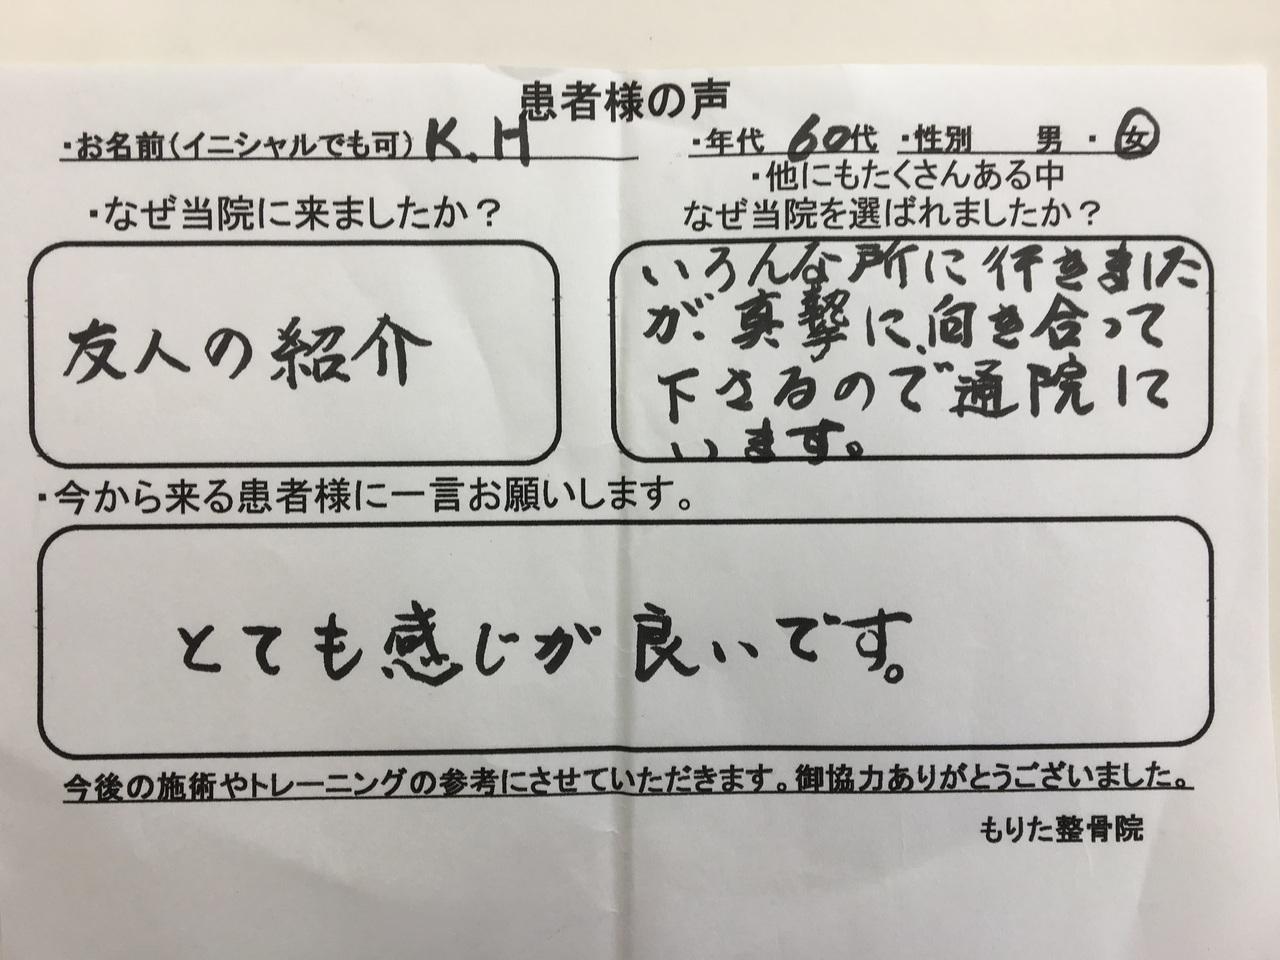 患者様の声
・お名前(イニシャルでも可) K.H
・年代 60代 ・性別 男 ・ 女
・なぜ当院に来ましたか？
友人の紹介
・他にもたくさんある中
なぜ当院を選ばれましたか？
いろんな所に行きました
が、真摯に、向き合って
下さるので通院して
います。
・今から来る患者様に一言お願いします。
とても感じが良いです。
今後の施術やトレーニングの参考にさせていただきます。御協力ありがとうございました。
もりた整骨院